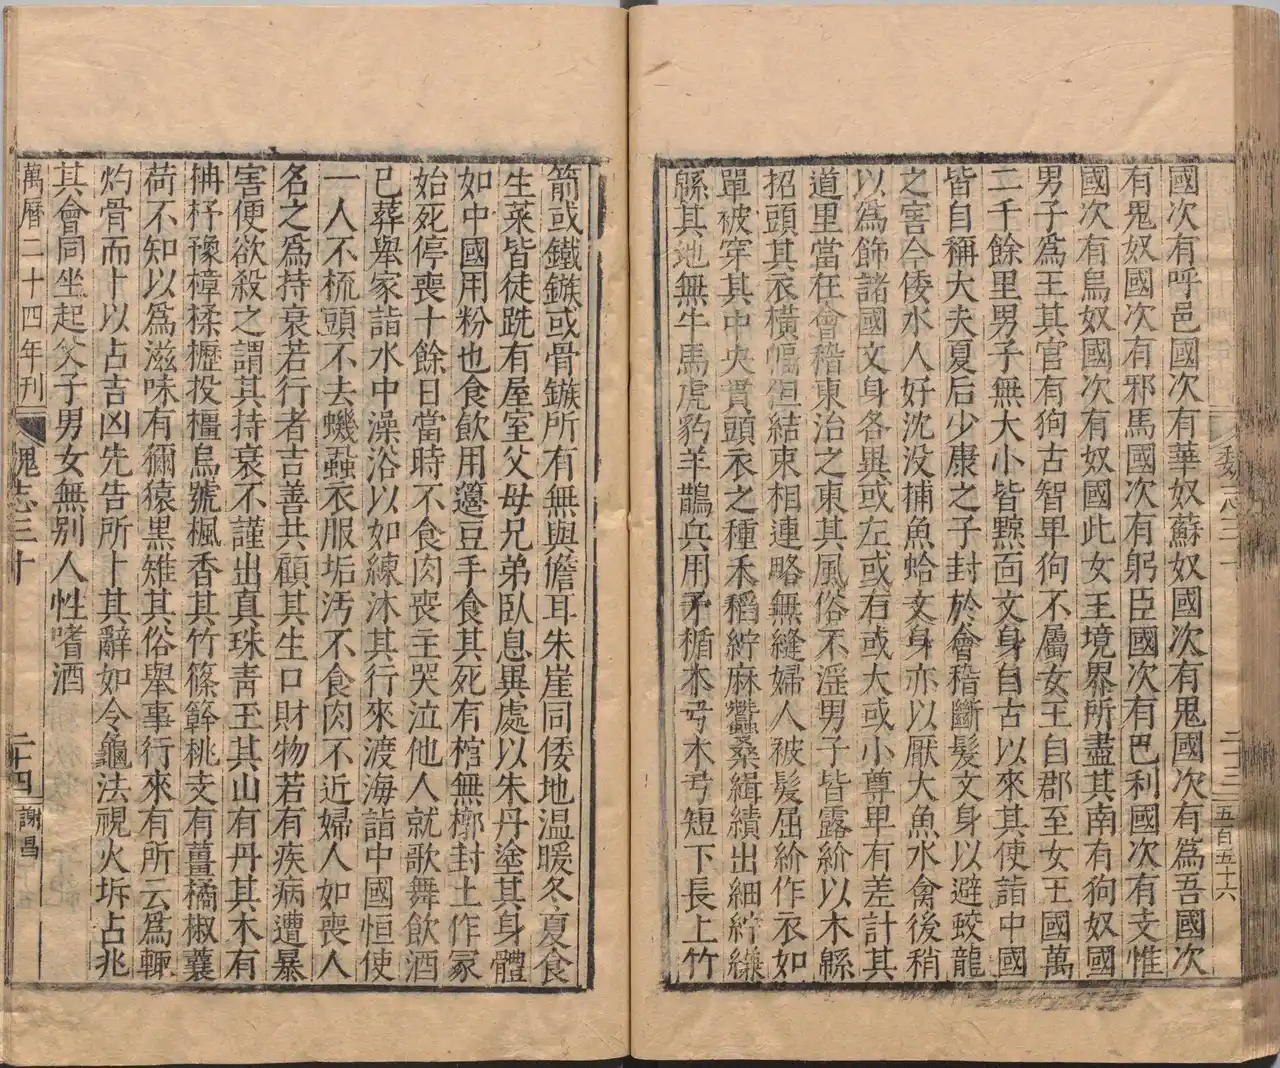 國次有呼邑國次有華奴蘇奴國次有鬼國次有爲吾國次
有鬼奴國次有邪馬國次有躬臣國次有巴利國次有支惟
國次有烏奴國次有奴國此女王境界所盡其南有狗奴國
男子爲王其官有狗古智卑狗不屬女王自郡至女王國萬
二千餘里男子無大小皆黥面文身自古以來其使詣中國
皆自稱大夫夏后少康之子封於會稽斷髮文身以避蛟龍
之害今倭水人好沈没捕魚蛤文身亦以厭大魚水禽後稍
以爲飾諸國文身各異或左或右或大或小尊卑有差計其
道里當在會稽東治之東其風俗不淫男子皆露紒以木緜
招頭其衣橫幅但結束相連略無縫婦人被髮屈紒作衣如
單被穿其中央貫頭衣之種禾稻紵麻蠶桑緝績出細紵縑
緜其地無牛馬虎豹羊鵲兵用矛楯木弓木弓短下長上竹
箭或鐵鏃或骨鏃所有無與儋耳朱崖同倭地温暖冬夏食
生菜皆徒跣有屋室父母兄弟臥息異處以朱丹塗其身體
如中國用粉也食飲用籩豆手食其死有棺無槨封土作冢
始死停喪十餘日當時不食肉喪主哭泣他人就歌舞飲酒
已葬舉家詣水中澡浴以如練沐其行來渡海詣中國恒使
一人不梳頭不去蟣蝨衣服垢汚不食肉不近婦人如喪人
名之爲持衰若行者吉善共顧其生口財物若有疾病遭暴
害便欲殺之謂其持衰不謹出真珠青玉其山有丹其木有
柟杼豫樟楺櫪投橿烏號楓香其竹篠簳桃支有薑橘椒蘘
荷不知以爲滋味有獮猿黑雉其俗舉事行來有所云爲輒
灼骨而卜以占吉凶先告所卜其辭如令龜法視火坼占兆
其會同坐起父子男女無別人性嗜酒
萬曆二十四年刊
魏志三十
二十四
謝昌
二十三
五百五十六